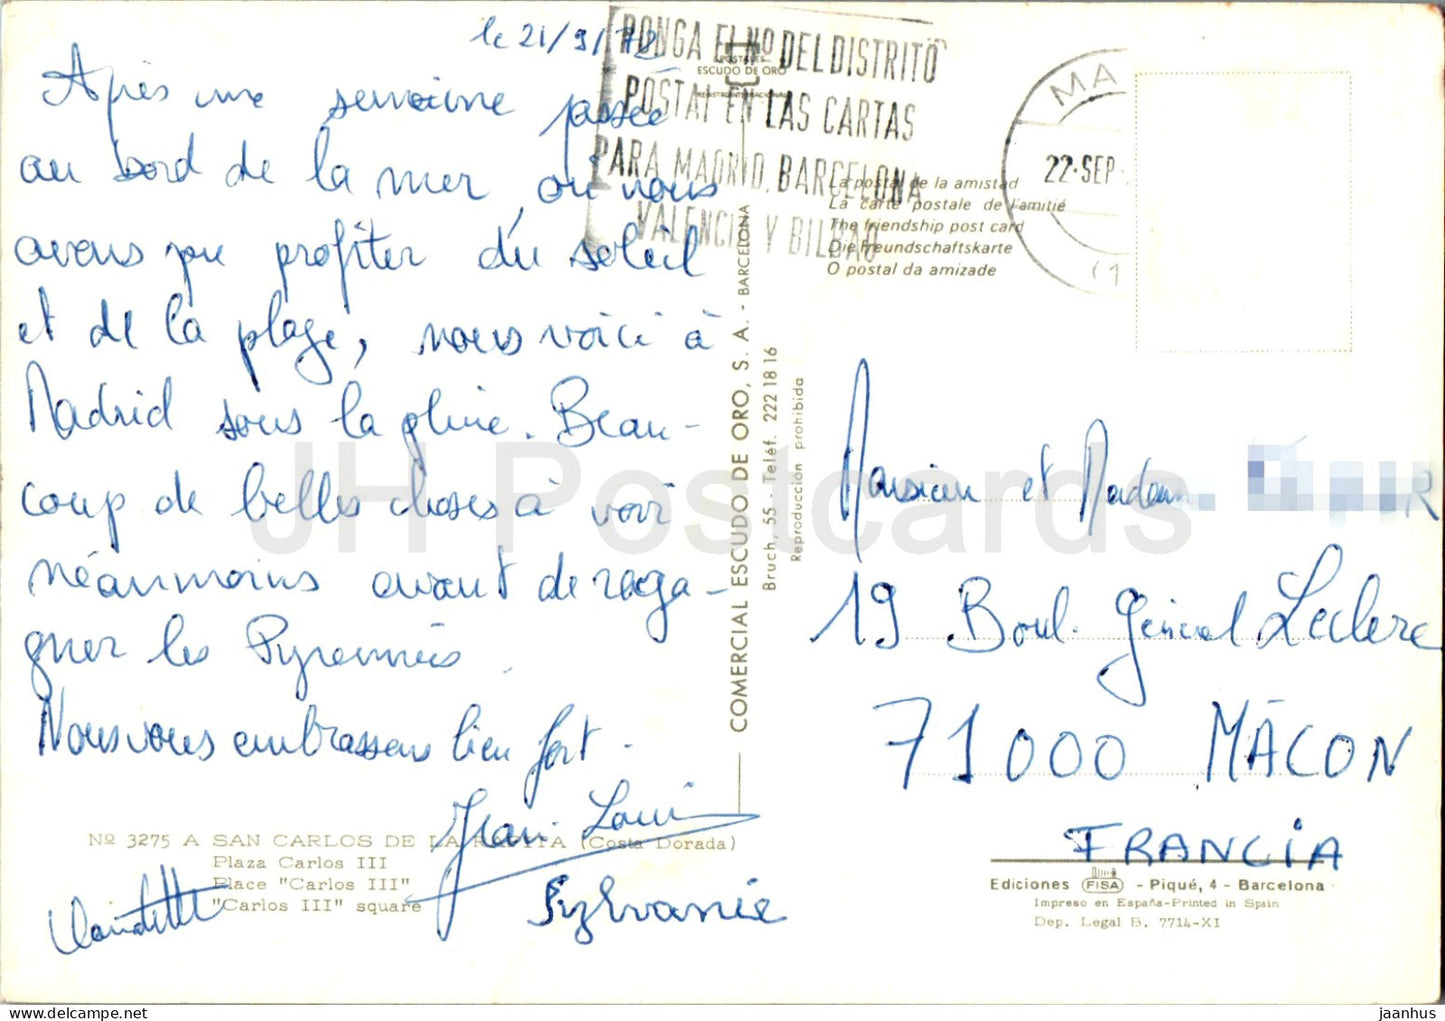 le 21/9/72
Après une semaine passée
au bord de la mer, où nous
avons pu profiter du soleil
et de la plage, nous voici à
Madrid sous la pluie. Beau-
coup de belles choses à voir
néanmoins avant de rega-
gner les Pyrennées.
Nous vous embrassons bien fort.
Jean Louis
Claudette
Sylvanie
Nº 3275 A SAN CARLOS DE LA RAPITA (Costa Dorada)
Plaza Carlos III
Place "Carlos III"
"Carlos III" square
PONGA EL Nº DEL DISTRITO
POSTAL EN LAS CARTAS
PARA MADRID, BARCELONA
VALENCIA Y BILBAO
POSTALES
ESCUDO DE ORO
REGISTRO INTERNACIONAL
COMERCIAL ESCUDO DE ORO, S. A. - BARCELONA
Bruch, 55 - Teléf. 222 18 16
Reproducción prohibida
MA
22 SEP
(1
La postal de la amistad
La carte postale de l'amitié
The friendship post card
Die Freundschaftskarte
O postal da amizade
Monsieur et Madame
19 Boul. Général Leclerc
71000 MÂCON
FRANCIA
Ediciones FISA - Piqué, 4 - Barcelona
Impreso en España-Printed in Spain
Dep. Legal B. 7714-XI
JH Postcards
delcampe.net
jaanhus